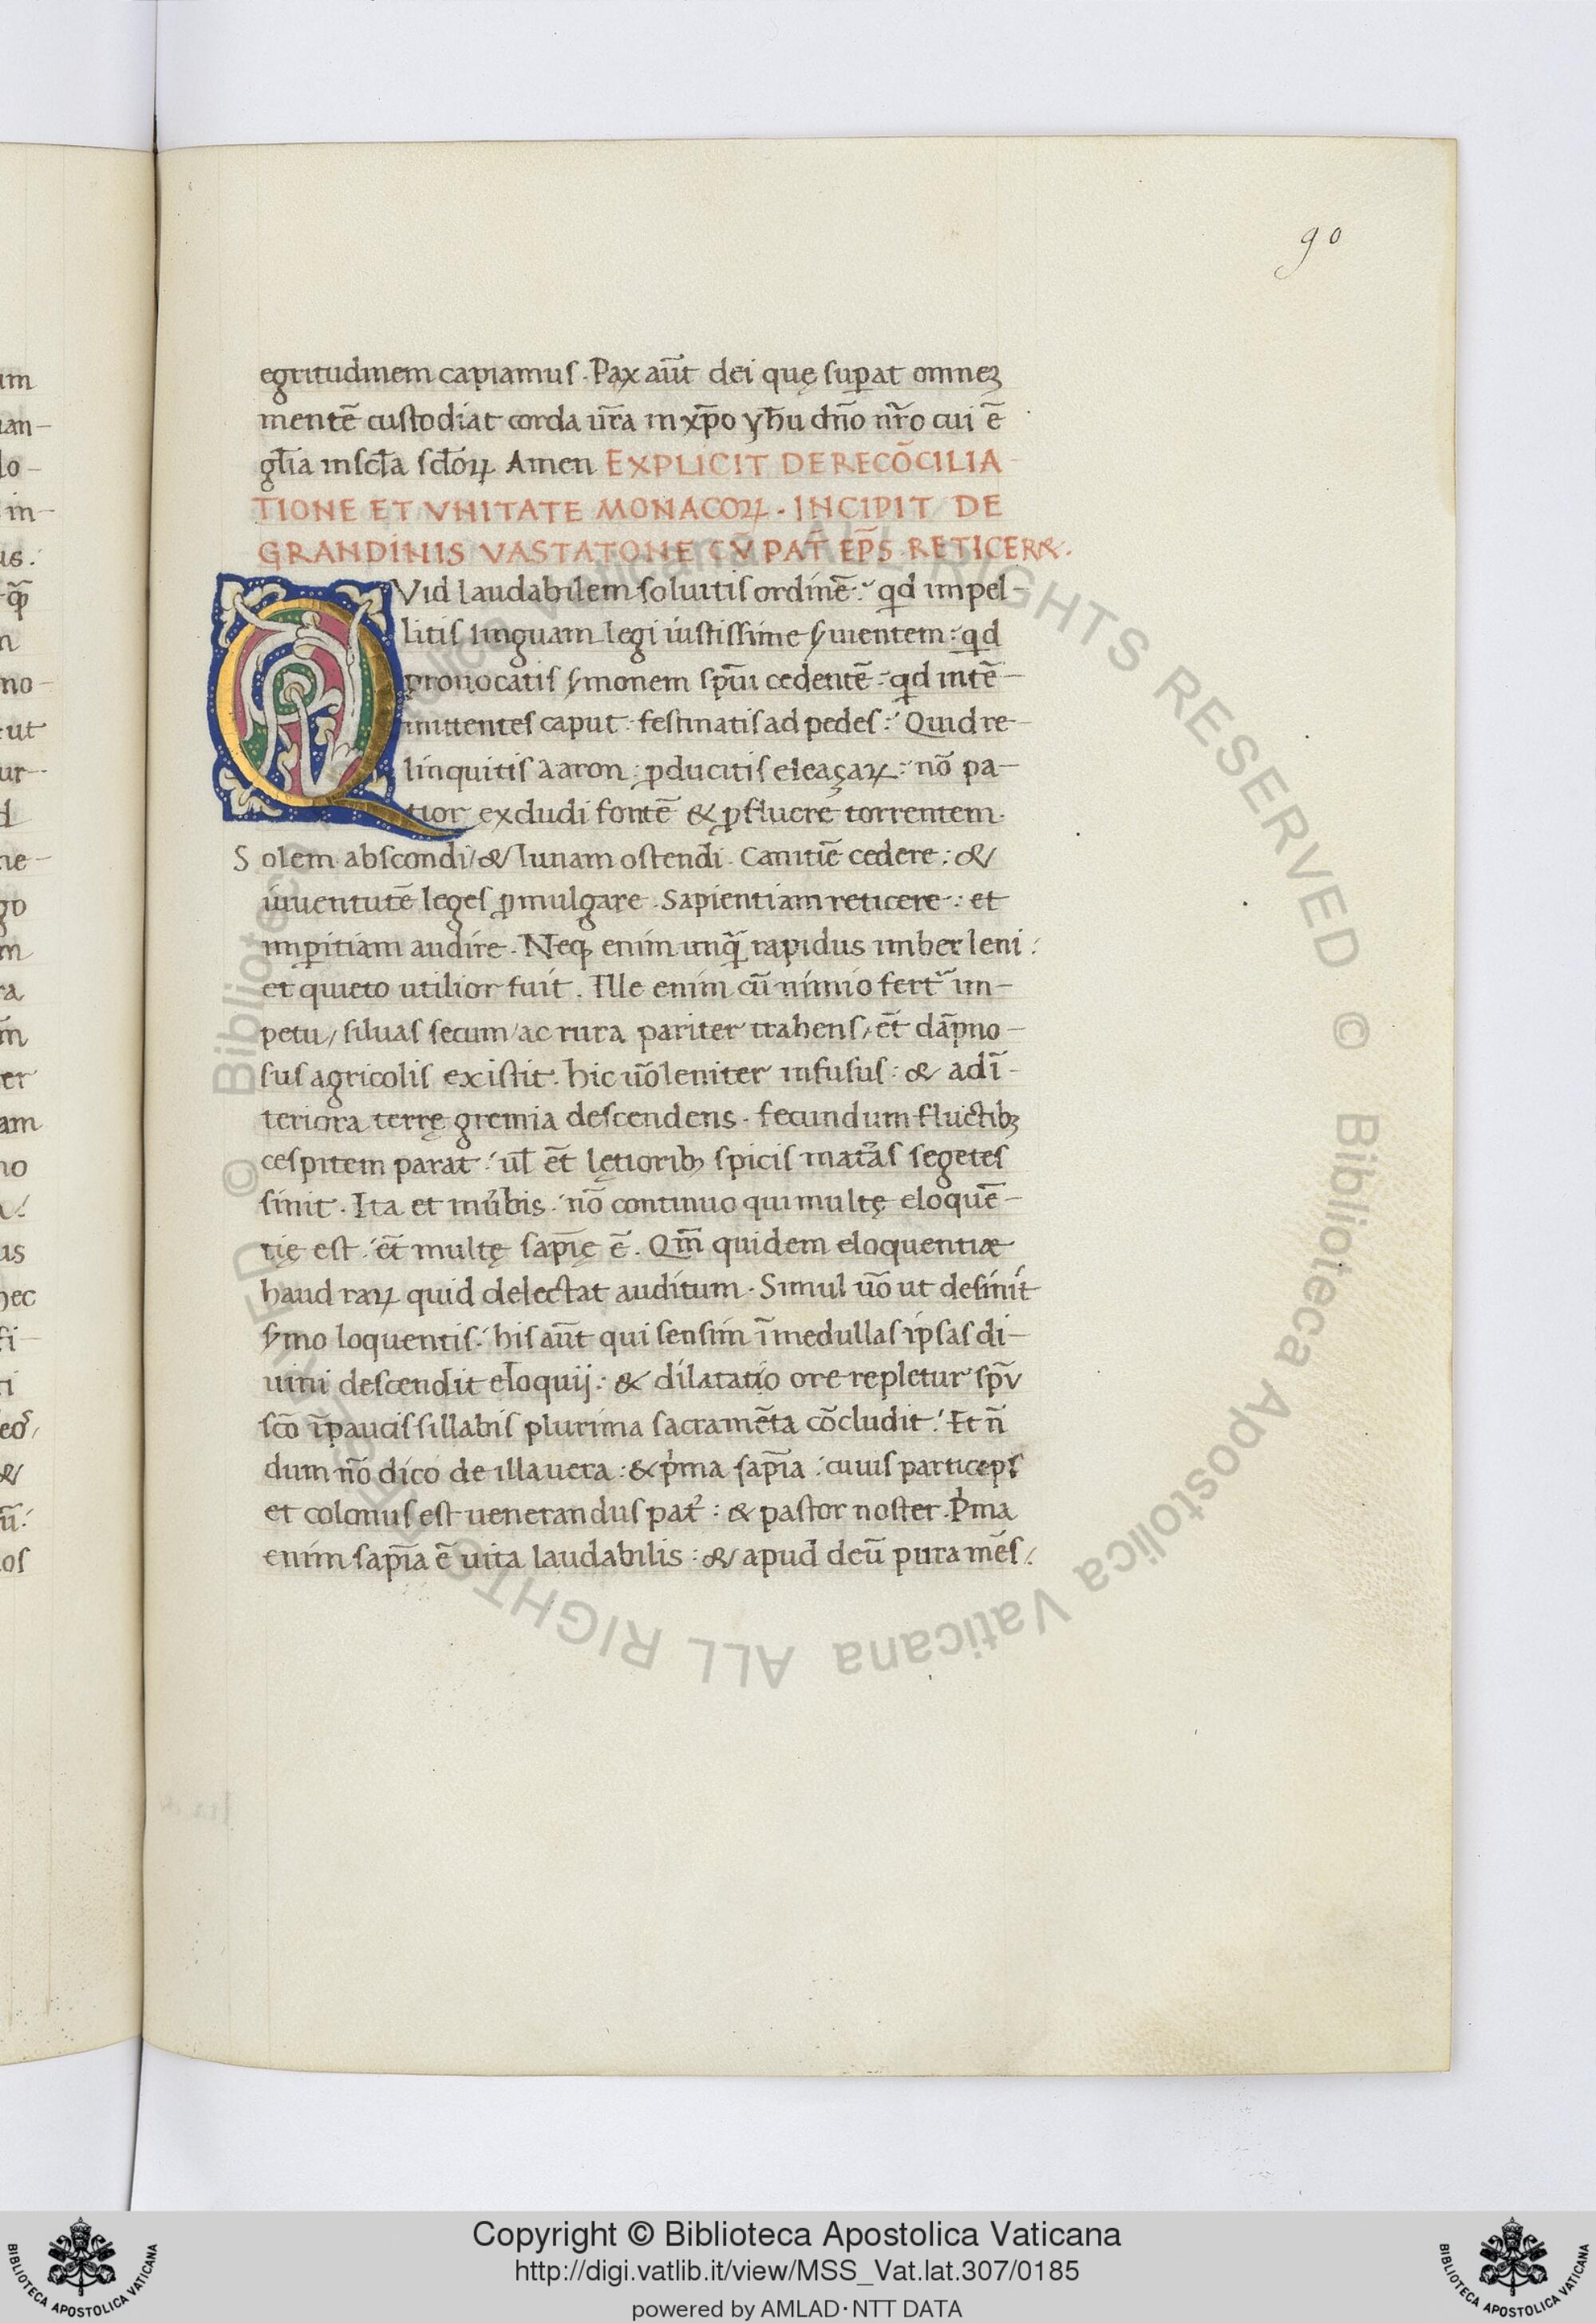 90
egritudinem capiamus. Pax aūt dei quę suꝑat omneꝫ
mentē custodiat corda ur̄a in xp̄o yh̄u dn̄o nr̄o cui ē
gl̄ia in scl̄a scl̄oꝝ Amen EXPLICIT DE RECŌCILIA
TIONE ET VNITATE MONACOꝜ. INCIPIT DE
GRANDINIS VASTATONE CV PAT̄ EP̄S RETICER&.
QVid laudabilem soluitis ordinē: qd impel-
litis linguam legi iustissime ẜuientem: qd
prouocatis ẜmonem spūi cedentē: qd intē-
imittentes caput festinatis ad pedes: Quid re-
linquitis aaron: ꝓducitis eleaçaꝝ: nō pa-
tior excludi fontē & ꝓfluere torrentem.
Solem abscondi/ & lunam ostendi. Canitiē cedere: &
iuuentutē leges ꝓmulgare. Sapientiam reticere: et
imꝑitiam audire. Neqꝫ enim unq̄ rapidus imber leni:
et quieto utilior fuit. Ille enim cū nimio fert᷑ im-
petu/ siluas secum/ ac rura pariter trahens/ et̄ dāpno-
sus agricolis existit. hic uō leniter infusus: & ad ī-
teriora terrę gremia descendens. fecundum fluctibꝫ
cespitem parat: ul̄ et̄ lętioribꝫ spicis mat᷑as segetes
sinit. Ita et in u᷑bis. nō continuo qui multę eloquē-
tię est: et̄ multę sap̄ię ē. Qm̄ quidem eloquentiæ
haud raꝝ quid delectat auditum. Simul uō ut desinit
ẜmo loquentis: his aūt qui sensim ī medullas ipsas di-
uini descendit eloquij: & dilatatio ore repletur sp̄u
sc̄o ī paucis sillabis plurima sacramēta cōcludit: Et n̄
dum nō dico de illa uera: & pͥma sap̄ia: cuius particeps
et colonus est uenerandus pat᷑: & pastor noster. Pͥma
enim sap̄ia ē uita laudabilis: & apud deū pura mēs:
um
uan-
lo-
in-
us:
no-
ut
ur-
ne-
go
m
ra
er
am
no
us
hec
ri
os
© Biblioteca Apostolica Vaticana ALL RIGHTS RESERVED © Biblioteca Apostolica Vaticana ALL RIGHTS RESERVED
BIBLIOTECA APOSTOLICA VATICANA
Copyright © Biblioteca Apostolica Vaticana
http://digi.vatlib.it/view/MSS_Vat.lat.307/0185
powered by AMLAD·NTT DATA
BIBLIOTECA APOSTOLICA VATICANA